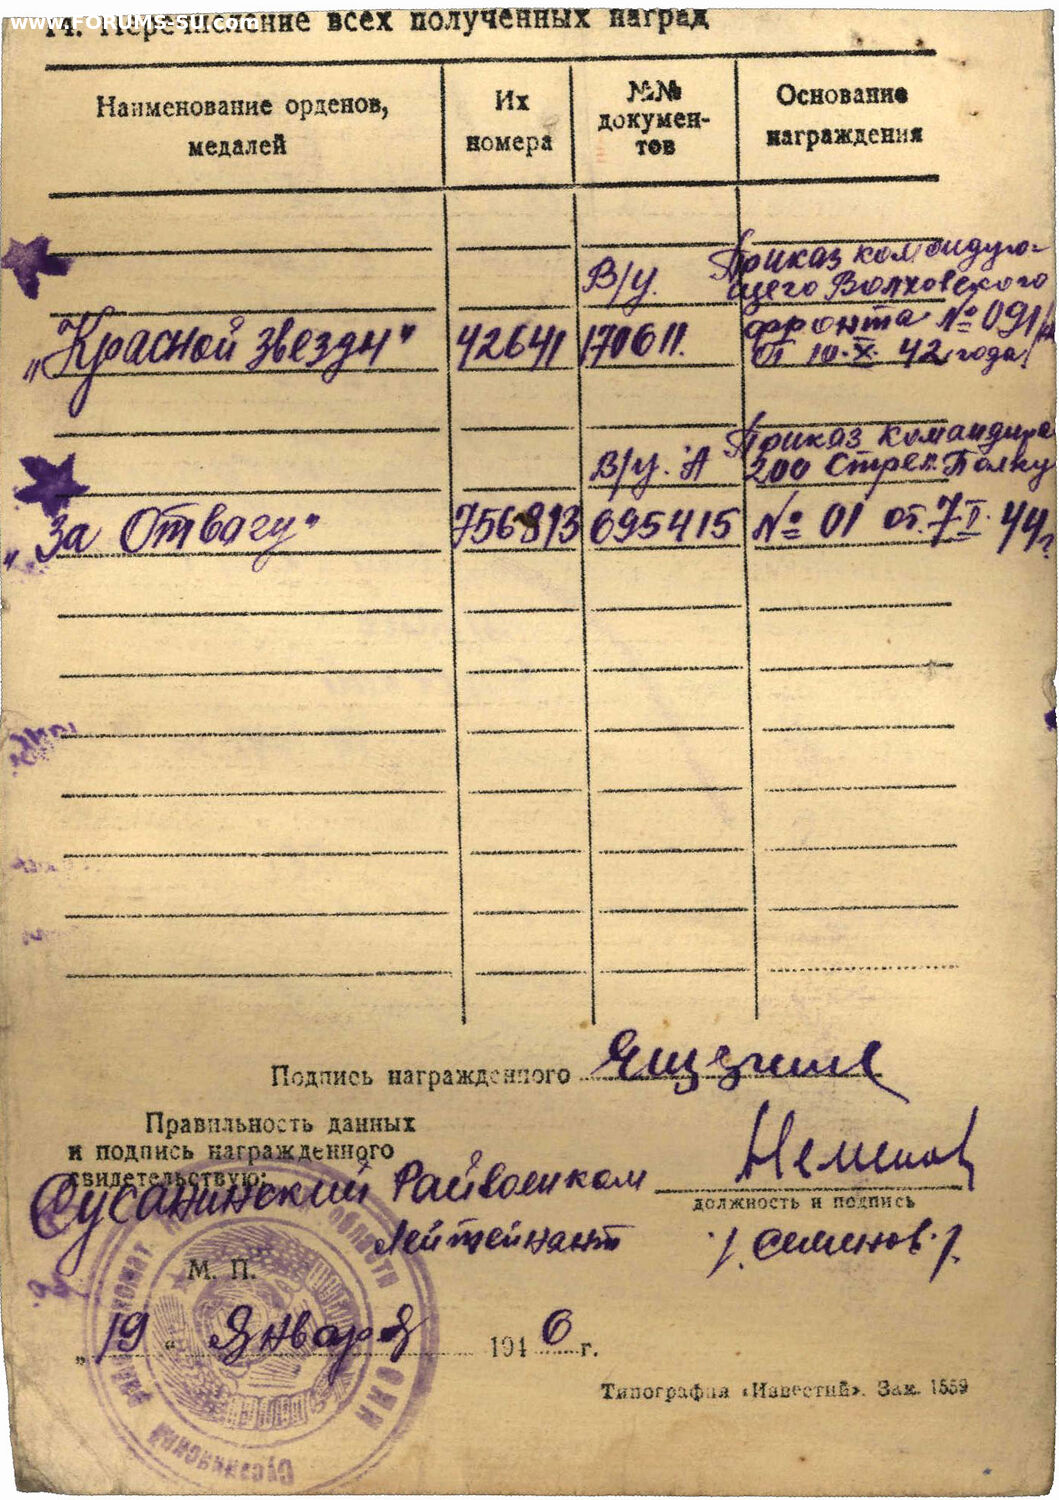 www.FORUMS-SU.com
14. Перечисление всех полученных наград
Наименование орденов,
медалей
Их
номера
№№
докумен-
тов
Основание
награждения
„Красной звезды"
42641
В/у.
170611.
Приказ командую-
щего Волховского
фронта № 091/
от 10.X. 42 года
„За Отвагу"
756813
В/у. А
695415
Приказ командира
200 Стрел. Полку
№ 01 от 7.I. 44г.
Подпись награжденного
Правильность данных
и подпись награжденного
свидетельствую:
Сусанинский Райвоенком
должность и подпись
Лейтенант /. Семенов. /.
М. П.
„19" Января 1946 г.
Типография «Известий». Зак. 1559
Сусанинский
области